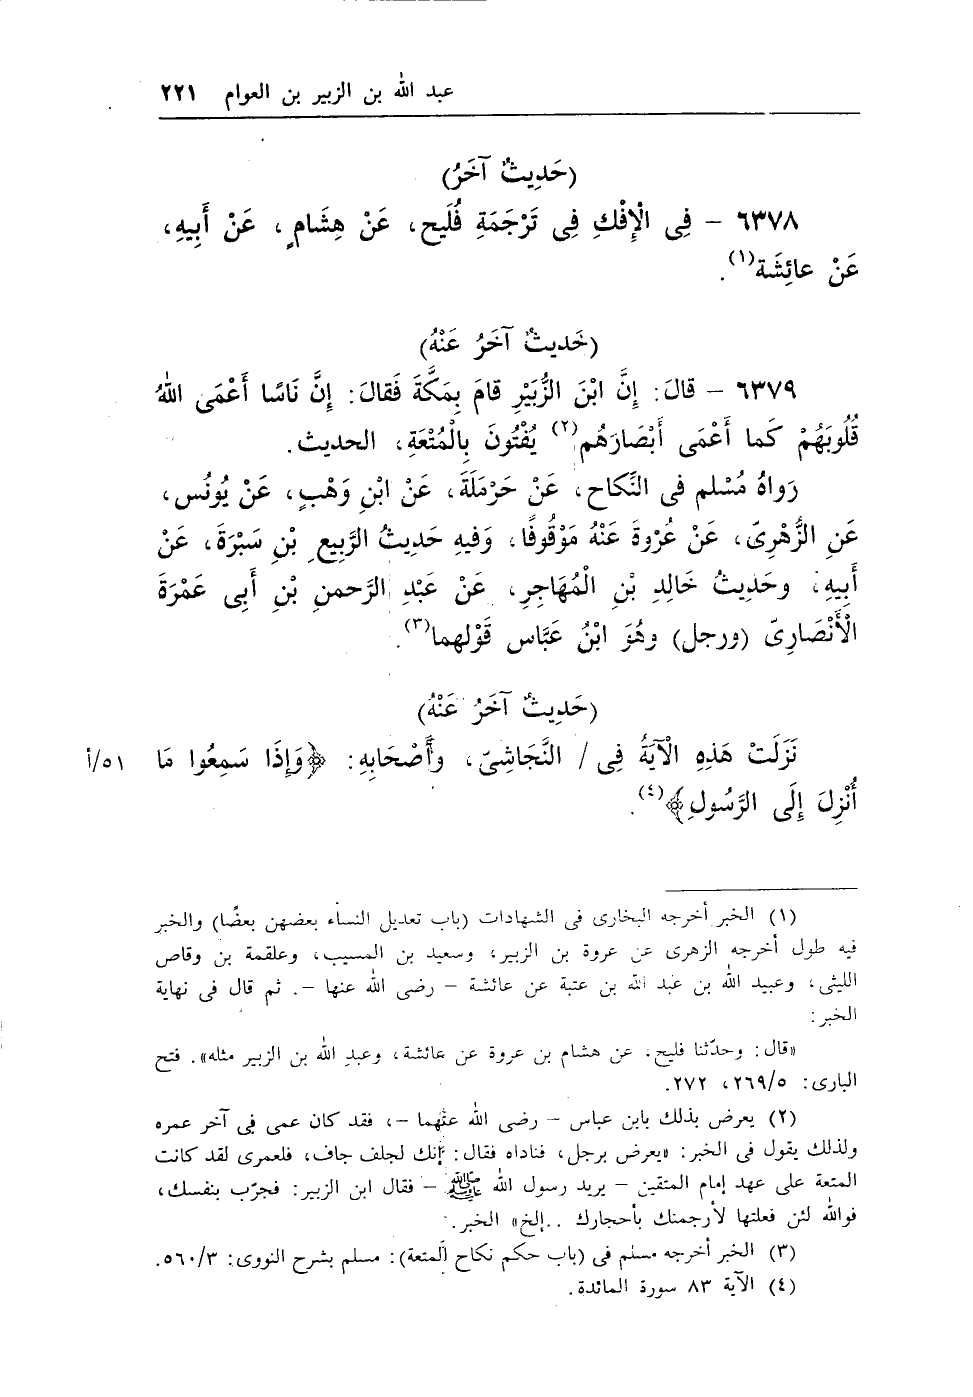 عبد الله بن الزبير بن العوام ٢٢١
(حَدِيثٌ آخَرُ)
٦٣٧٨ - فِى الْإِفْكِ فِى تَرْجَمَةِ فُلَيح، عَنْ هِشَامٍ، عَنْ أَبِيهِ،
عَنْ عائِشَة(١).
(حَديثٌ آخَرُ عَنْهُ)
٦٣٧٩ - قالَ: إِنَّ ابْنَ الزُّبَيْرِ قامَ بِمَكَّةَ فَقالَ: إِنَّ نَاسًا أَعْمَى اللهُ
قُلُوبَهُمْ كَما أَعْمَى أَبْصَارَهُم(٢) يُفْتُونَ بِالْمُتْعَةِ، الحديث.
رَواهُ مُسْلم فى النِّكاح، عَنْ حَرْمَلَةَ، عَنْ ابْنِ وَهْبٍ، عَنْ يُونُس،
عَنِ الزُّهْرِىّ، عَنْ عُرْوةَ عَنْهُ مَوْقُوفًا، وَفيهِ حَديثُ الرَّبِيعِ بْنِ سَبْرَةَ، عَنْ
أَبِيهِ، وحَدِيثُ خَالِدِ بْنِ الْمُهَاجِرِ، عَنْ عَبْدِ الرَّحمنِ بْنِ أَبى عَمْرَةَ
الْأَنْصَارِىّ (ورجل) وهُوَ ابْنُ عَبَّاس قَوْلهما(٣).
(حَدِيثٌ آخَرُ عَنْهُ)
نَزَلَتْ هَذِهِ الْآيَةُ فِى / النَّجاشِىّ، وأَصْحَابِهِ: ﴿وَإِذَا سَمِعُوا مَا ٥١/أ
أُنْزِلَ إِلَى الرَّسُولِ﴾(٤).
(١) الخبر أخرجه البخارى فى الشهادات (باب تعديل النساء بعضهن بعضًا) والخبر
فيه طول أخرجه الزهرى عن عروة بن الزبير، وسعيد بن المسيب، وعلقمة بن وقاص
الليثى، وعبيد الله بن عبد الله بن عتبة عن عائشة - رضى الله عنها -. ثم قال فى نهاية
الخبر:
«قال: وحدّثنا فليح، عن هشام بن عروة عن عائشة، وعبد الله بن الزبير مثله». فتح
البارى: ٢٦٩/٥، ٢٧٢.
(٢) يعرض بذلك بابن عباس - رضى الله عنهما -، فقد كان عمى فى آخر عمره
ولذلك يقول فى الخبر: «يعرض برجل، فناداه فقال: إنك لجلف جاف، فلعمرى لقد كانت
المتعة على عهد إمام المتقين - يريد رسول الله ﷺ - فقال ابن الزبير: فجرّب بنفسك،
فوالله لئن فعلتها لأرجمنك بأحجارك ..إلخ» الخبر.
(٣) الخبر أخرجه مسلم فى (باب حكم نكاح المتعة): مسلم بشرح النووى: ٥٦٠/٣.
(٤) الآية ٨٣ سورة المائدة.